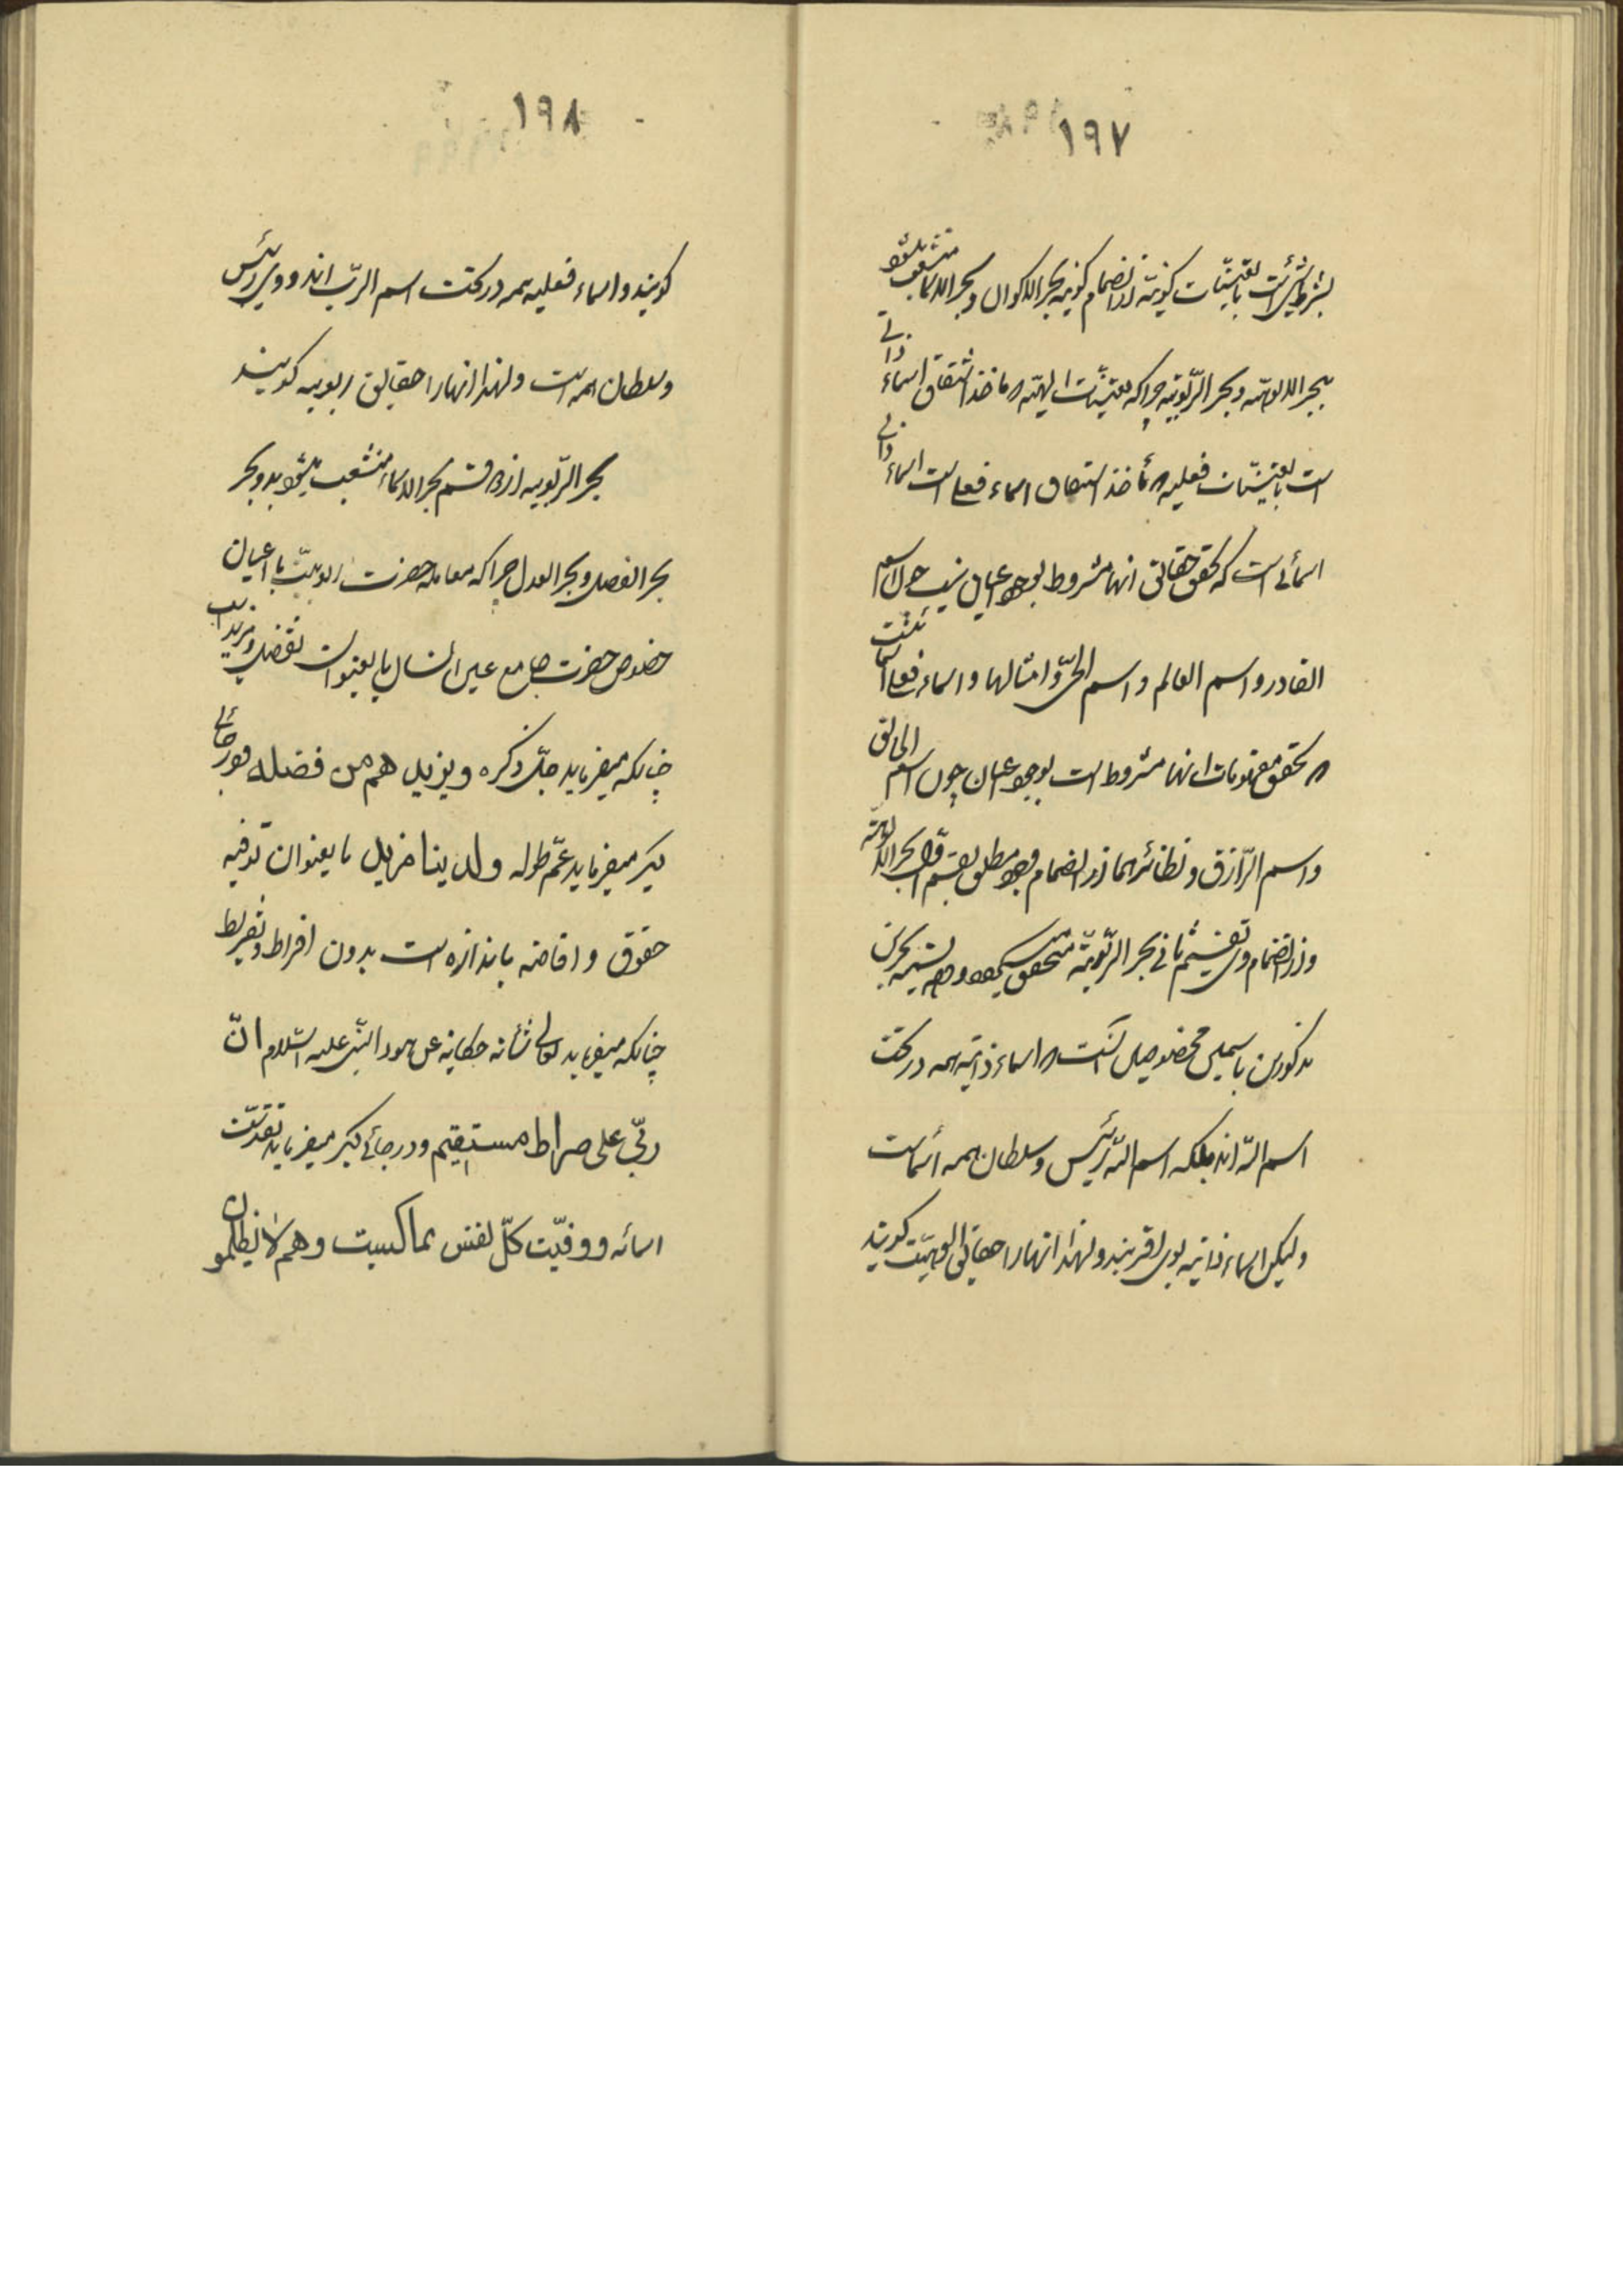 ١٩٧
بشرط شیٔ است با تعیّنات کونیّه از انضمام کونیه بحر الاکوان و بحر الاسماء منشعب میشود
ببحر الالوهیّه و بحر الرّبوبیّه چرا که تعیّنات الهیّه یا ماخذ اشتقاق اسماء ذاتی
است یا تعیّنات فعلیه یا مأخذ اشتقاق اسماء فعلی است اسماء ذاتی
اسمائی است که تحقق حقائق انها مشروط بوجود اعیان نیست چون اسم
القادر و اسم العالم و اسم الحیّ و امثالها و اسماء فعلی
که تحقق مفهومات انها مشروط است بوجود اعیان چون اسم الخالق
و اسم الرّازق و نظائرهما از انضمام وجود مطلق بقسم اوّل بحر الالوهیّه
و از انضمام وی بقسم ثانی بحر الرّبوبیّه متحقق میشود و وجه تسمیه بحرین
مذکورین باسمین مخصوصین آنست که اسماء ذاتیّه همه در تحت
اسم اللّه اند بلکه اسم اللّه رئیس و سلطان همه أسماست
ولیکن اسماء ذاتیه بوی اقربند و لهذا انها را حقایق الوهیّت کویند
١٩٨
کویند و اسماء فعلیه همه در تحت اسم الرّب اند و وی رئیس
و سلطان همه است و لهذا انها را حقایق ربوبیه کویند
بحر الرّبوبیه از قسم بحر الاسماء منشعب میشود بدو بحر
بحر الفضل و بحر العدل چرا که معامله حضرت ربوبیّت با اعیان
خصوص حضرت جامع عین انسان یا بعنوان تفضل و مزید است
چنانکه میفرماید جلّ ذکره ویزیدهم من فضله و در جائی
دیکر میفرماید عمّ طوله ولدینا مزید یا بعنوان توفیه
حقوق و افاضه باندازه است بدون افراط و تفریط
چنانکه میفرماید تعالی شأنه حکایة عن هود النّبی علیه السّلام انّ
ربّی علی صراط مستقیم و در جائی دیکر میفرماید تقدّست
اسمائه و وفیّت کلّ نفس بما کسبت و هم لا یظلمون